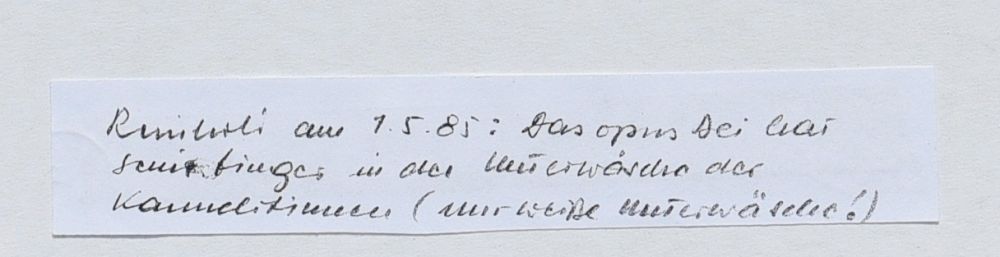 am 1.5.85: Das opus Dei hat
seine Finger in der Unterwäsche der
Karmelitinnen (nur weiße Unterwäsche!)